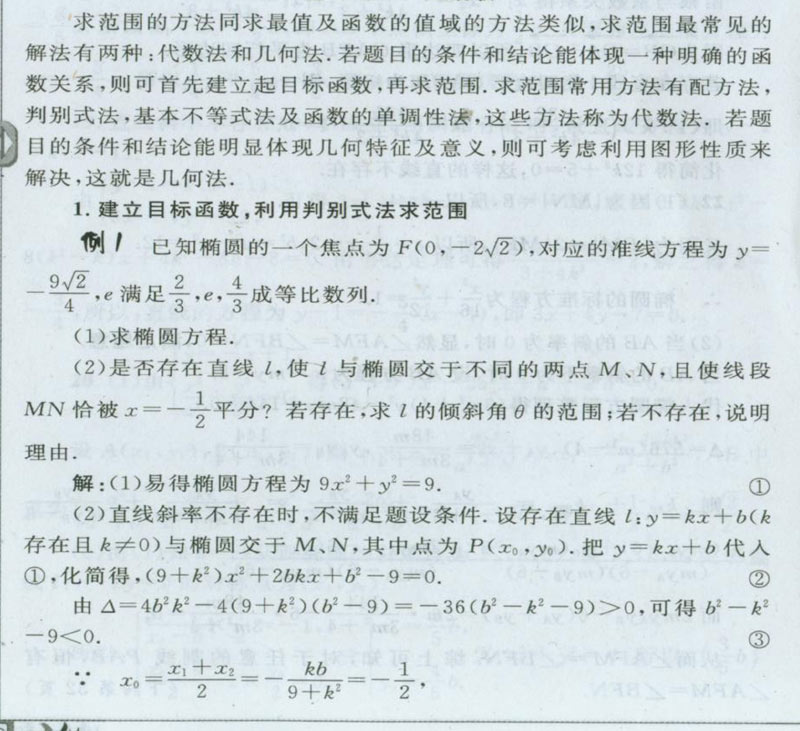 求范围的方法同求最值及函数的值域的方法类似,求范围最常见的
解法有两种:代数法和几何法.若题目的条件和结论能体现一种明确的函
数关系,则可首先建立起目标函数,再求范围.求范围常用方法有配方法,
判别式法,基本不等式法及函数的单调性法,这些方法称为代数法.若题
目的条件和结论能明显体现几何特征及意义,则可考虑利用图形性质来
解决,这就是几何法.
1.建立目标函数,利用判别式法求范围
例1 已知椭圆的一个焦点为 F(0,-2√2),对应的准线方程为 y=
-9√2/4,e 满足 2/3,e,4/3 成等比数列.
(1)求椭圆方程.
(2)是否存在直线 l,使 l 与椭圆交于不同的两点 M、N,且使线段
MN 恰被 x=-1/2 平分?若存在,求 l 的倾斜角 θ 的范围;若不存在,说明
理由.
解:(1)易得椭圆方程为 9x²+y²=9. ①
(2)直线斜率不存在时,不满足题设条件.设存在直线 l:y=kx+b(k
存在且 k≠0)与椭圆交于 M、N,其中点为 P(x₀,y₀).把 y=kx+b 代入
①,化简得,(9+k²)x²+2bkx+b²-9=0. ②
由 Δ=4b²k²-4(9+k²)(b²-9)=-36(b²-k²-9)>0,可得 b²-k²
-9<0. ③
∵ x₀=(x₁+x₂)/2=-kb/(9+k²)=-1/2,